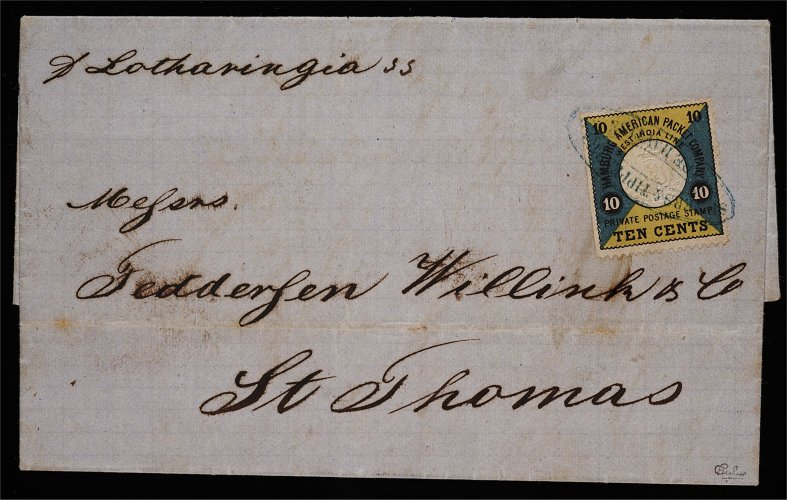 p Lotharingia ss
10 10
HAMBURG AMERICAN PACKET COMPANY
WEST INDIA LINE
10 10
PRIVATE POSTAGE STAMP
TEN CENTS
Messrs.
Teddersen Willink & Co
St Thomas